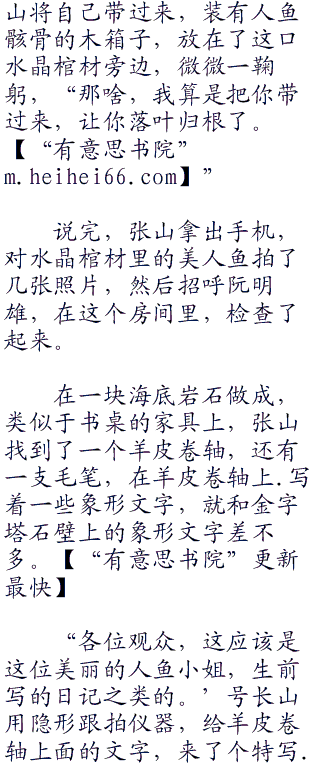 山将自己带过来，装有人鱼
骸骨的木箱子，放在了这口
水晶棺材旁边，微微一鞠
躬，“那啥，我算是把你带
过来，让你落叶归根了。
【“有意思书院”
m.heihei66.com】”
说完，张山拿出手机，
对水晶棺材里的美人鱼拍了
几张照片，然后招呼阮明
雄，在这个房间里，检查了
起来。
在一块海底岩石做成，
类似于书桌的家具上，张山
找到了一个羊皮卷轴，还有
一支毛笔，在羊皮卷轴上.写
着一些象形文字，就和金字
塔石壁上的象形文字差不
多。【“有意思书院”更新
最快】
“各位观众，这应该是
这位美丽的人鱼小姐，生前
写的日记之类的。’号长山
用隐形跟拍仪器，给羊皮卷
轴上面的文字，来了个特写.